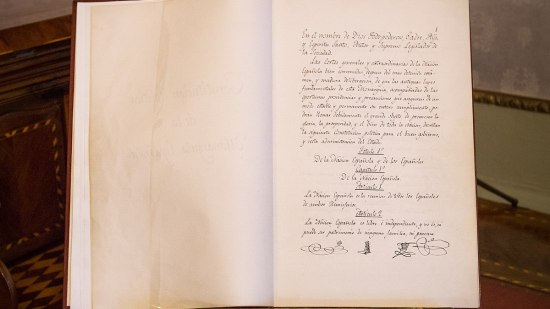 1
En el nombre de Dios Todopoderoso, Padre, Hijo,
y Espíritu Santo, Autor y Supremo Legislador de
la Sociedad.
Las Cortes generales y extraordinarias de la Nación
Española, bien convencidas, después del mas detenido exá-
men, y madura deliberación, de que las antiguas leyes
fundamentales de esta Monarquía, acompañadas de las
oportunas providencias y precauciones, que aseguren de un
modo estable y permanente su entero cumplimiento, po-
drán llenar debidamente el grande objeto de promover la
gloria, la prosperidad, y el bien de toda la Nación, decretan
la siguiente Constitución política para el buen gobierno,
y recta administración del Estado.
Título 1º
De la Nación Española y de los Españoles.
Capítulo 1º
De la Nación Española.
Artículo 1.
La Nación Española es la reunión de todos los Españoles
de ambos Hemisferios.
Artículo 2.
La Nación Española es libre é independiente, y no es, ni
puede ser patrimonio de ninguna familia, ni persona.